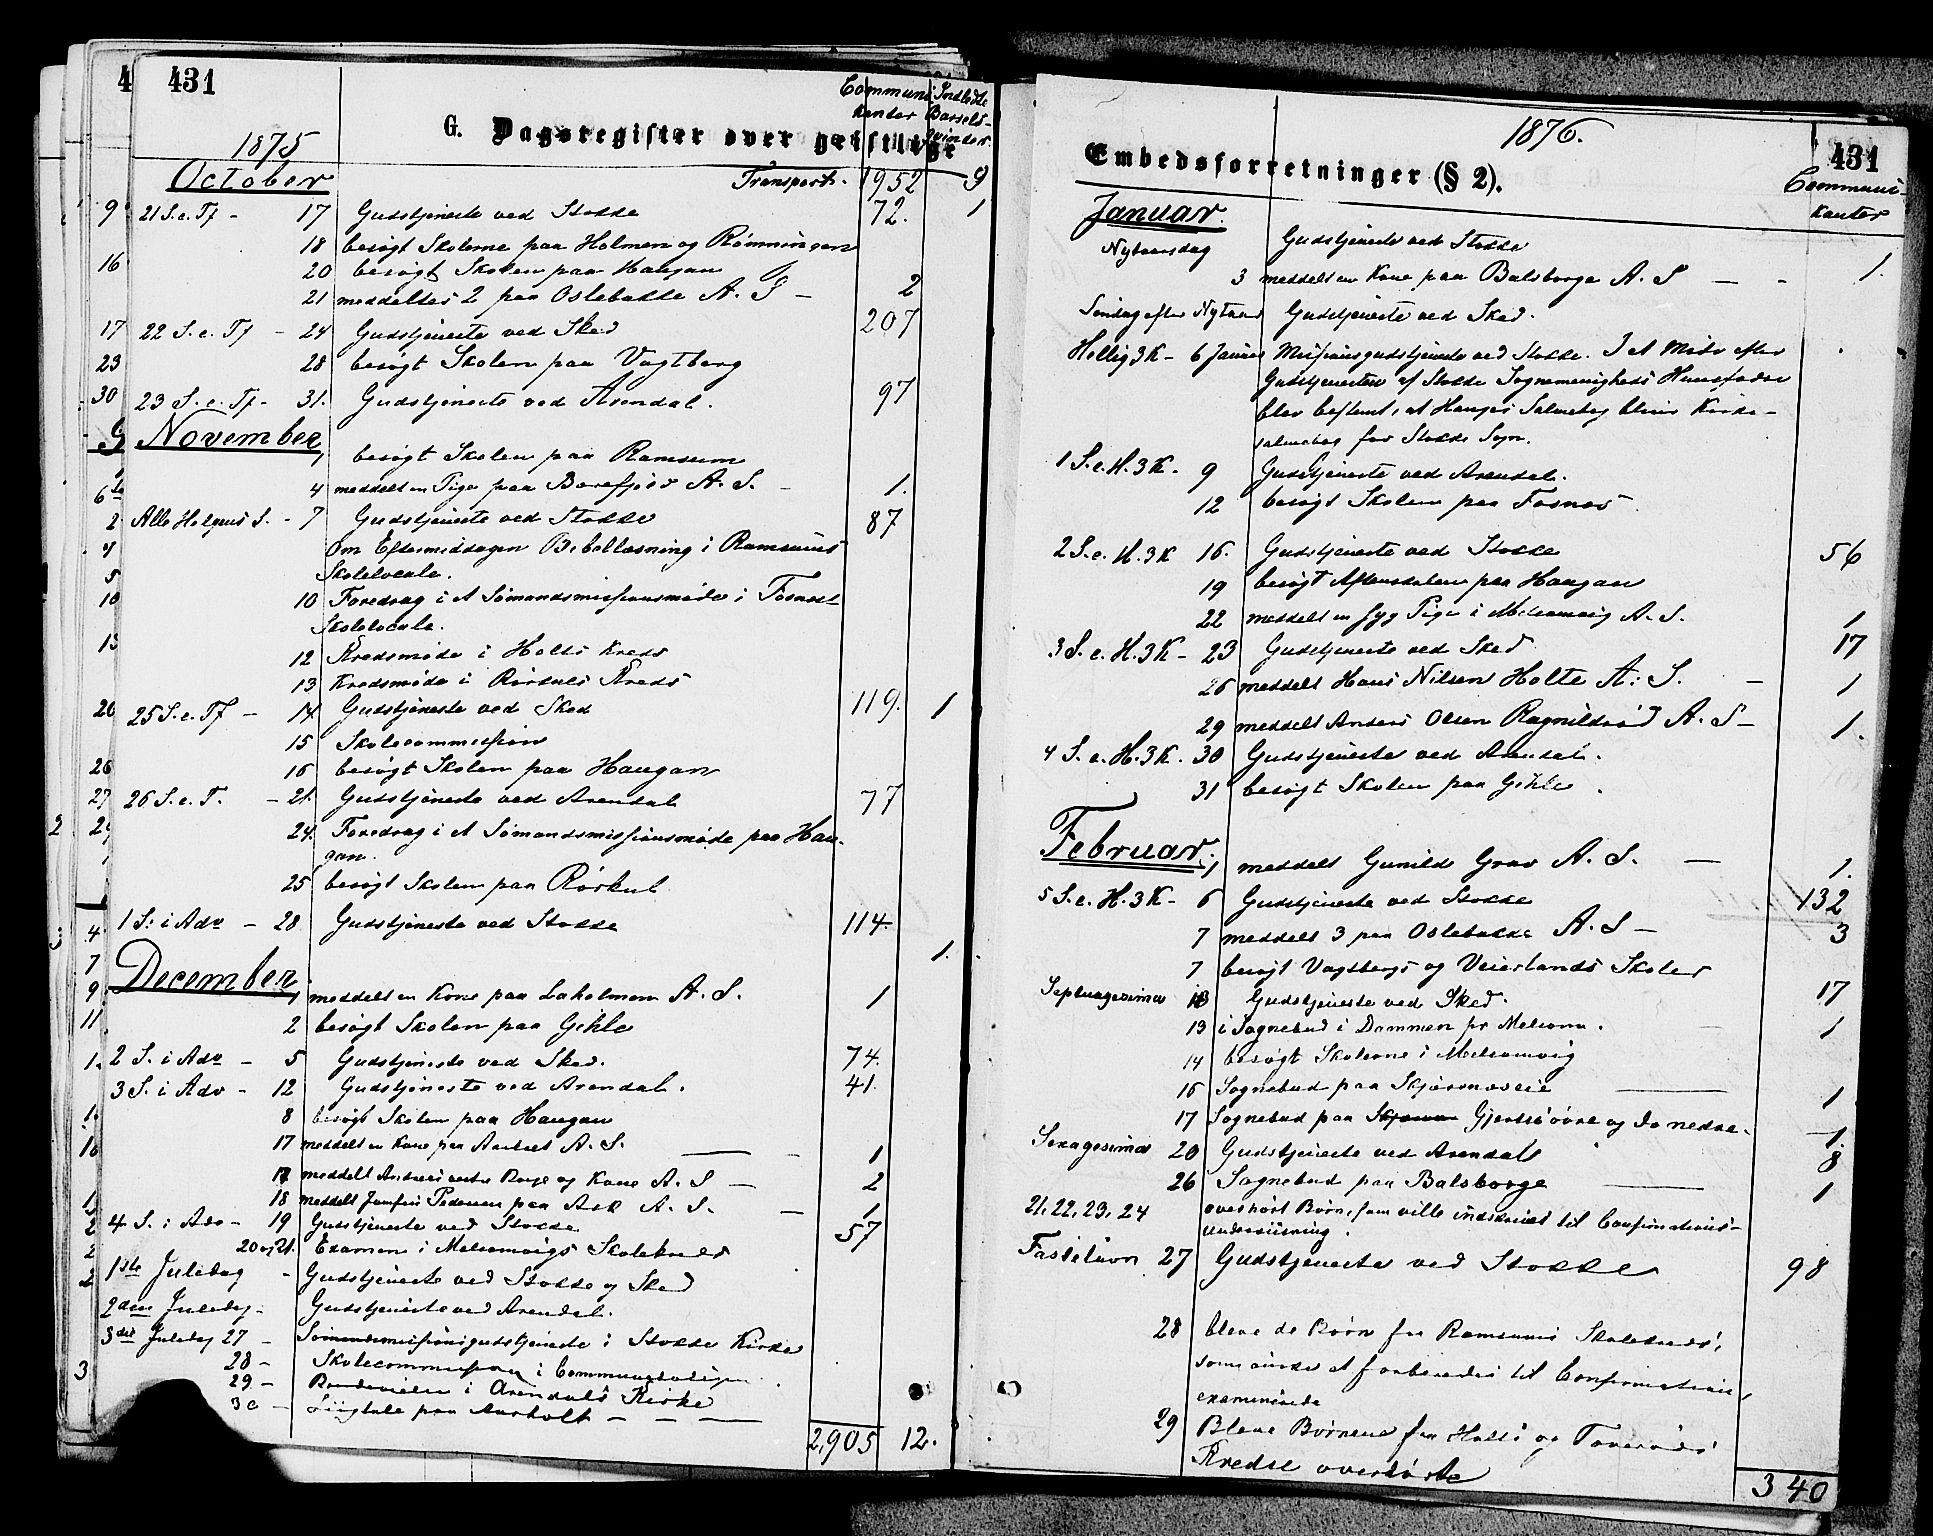 431
1875
G. Dagsregister over geistlige
Communikanter
Indledte Barselkvinder
October
Transport. 1952 9
21 S. e. Tf - 17 Gudstjeneste ved Stokke 72. 1
18 besøgt Skolerne paa Holmen og Rømningen
20 besøgt Skolen paa Haugan
21 meddeltes 2 paa Oslebakke A. S - 2
22 S. e. Tf - 24 Gudstjeneste ved Sked 207
28 besøgt Skolen paa Vagtberg
23 S. e. Tf - 31. Gudstjeneste ved Arendal. 97
November
1 besøgt Skolen paa Ramsum
4 meddelt en Pige paa Borefjord A. S. - 1.
Alle Helgens S. - 7 Gudstjeneste ved Stokke 87
Om Eftermiddagen Bibellæsning i Ramsums
Skolelocale.
10 Foredrag i et Sømandsmissionsmøde i Fosnæs
Skolelocale.
12 Kredsmøde i Holts Kreds
13 Kredsmøde i Rørkuls Kreds
25 S. e. Tf - 14 Gudstjeneste ved Sked 119. 1
15 Skolecommission
16 besøgt Skolen paa Haugan
26 S. e. T. - 21. Gudstjeneste ved Arendal 77
24. Foredrag i et Sømandsmissionsmøde paa Hau-
gan.
25 besøgt Skolen paa Rørkul
1 S. i Adv - 28 Gudstjeneste ved Stokke 114.
1.
December
1 meddelt en Kone paa Laholmen A. S. 1
2 besøgt Skolen paa Gjhle
2 S. i Adv - 5 Gudstjeneste ved Sked. 74.
3 S. i Adv - 12 Gudstjeneste ved Arendal. 41.
8 besøgt Skolen paa Haugan
17 meddelt en Kone paa A. S. 1
meddelt Andreas Borge og Kone A. S - 2
18 meddelt Pedersen paa Ask A. S. - 1
4 S. i Adv - 19 Gudstjeneste ved Stokke 57
20 og 21. Examen i Melsomvigs Skolekreds
1ste Juledag - Gudstjeneste ved Stokke og Sked
2den Juledag - Gudstjeneste ved Arendal.
3die Juledag 27 - Sømandsmissionsgudstjeneste i Stokke Kirke
28 - Skolecommission i
29 - i Arendals Kirke
30 - Liigtale paa Aarholt - - -
2,905 12.
1876.
431
Embedsforretninger (§ 2).
Communikanter
Januar.
Nytaarsdag Gudstjeneste ved Stokke
3 meddelt en Kone paa Balsborge A. S - - 1.
Søndag efter Nytaar Gudstjeneste ved Sked.
Hellig 3 K - 6 Januar Missionsgudstjeneste ved Stokke. I et Møde efter
Gudstjenesten af Stokke Sognemenigheds Huusfædre
blev bestemt, at Hauges Salmebog bliver Kirke-
salmebog for Stokke Sogn.
1 S. e. H. 3 K. 9 Gudstjeneste ved Arendal.
12 besøgt Skolen paa Fosnes
2 S. e. H. 3 K 16. Gudstjeneste ved Stokke 56
19 besøgt Aftenskolen paa Haugan
22 meddelt en syg Pige i Melsomvig A. S. 1
3 S. e. H. 3 K - 23 Gudstjeneste ved Sked 17
26 meddelt Hans Nilsen Holte A. S. - 1
29 meddelt Anders Olsen Ragnildrød A. S - 1.
4 S. e. H. 3 K. 30 Gudstjeneste ved Arendal.
31 besøgt Skolen paa Gjhle.
Februar.
1 meddelt Gunilde Grav A. S. - 1.
5 S. e. H. 3 K - 6 Gudstjeneste ved Stokke 132
7 meddelt 3 paa Oslebakke A. S - 3
7 besøgt Vagtbergs og Veierlands Skoler
Septuagesima 13 Gudstjeneste ved Sked. 17
13 i Sognebud i Dammen pr Melsom. 1
14 besøgt Skolerne i Melsomvig
16 Sognebud paa Skjærsnæseie 1
17 Sognebud paa Gjertsø øvre og do nedre. 1.
Sexagesima 20 Gudstjeneste ved Arendal 8
26 Sognebud paa Balsborge 1
21, 22, 23, 24 overhørt Børn, som ville indskrives til Confirmations-
underviisning.
Fastelavn 27 Gudstjeneste ved Stokke 98
28 bleve de Børn fra Ramsums Skolekreds,
som ønske at forberedes til Confirmation,
examinerede
29 Bleve Børnene fra Holts og Tønsrøds
Kredse overhørte
340